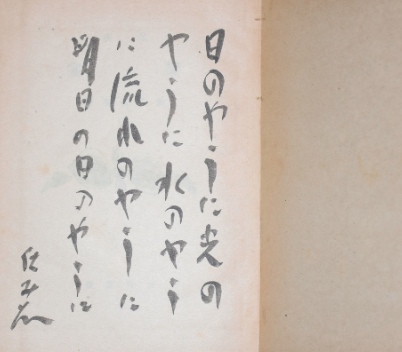 日のやうに光の
やうに水のやう
に流れのやうに
明日の日のやうに